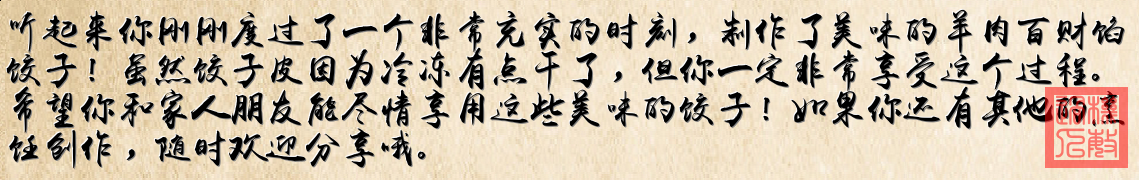 听起来你刚刚度过了一个非常充实的时刻，制作了美味的羊肉百财馅
饺子！虽然饺子皮因为冷冻有点干了，但你一定非常享受这个过程。
希望你和家人朋友能尽情享用这些美味的饺子！如果你还有其他的烹
饪创作，随时欢迎分享哦。